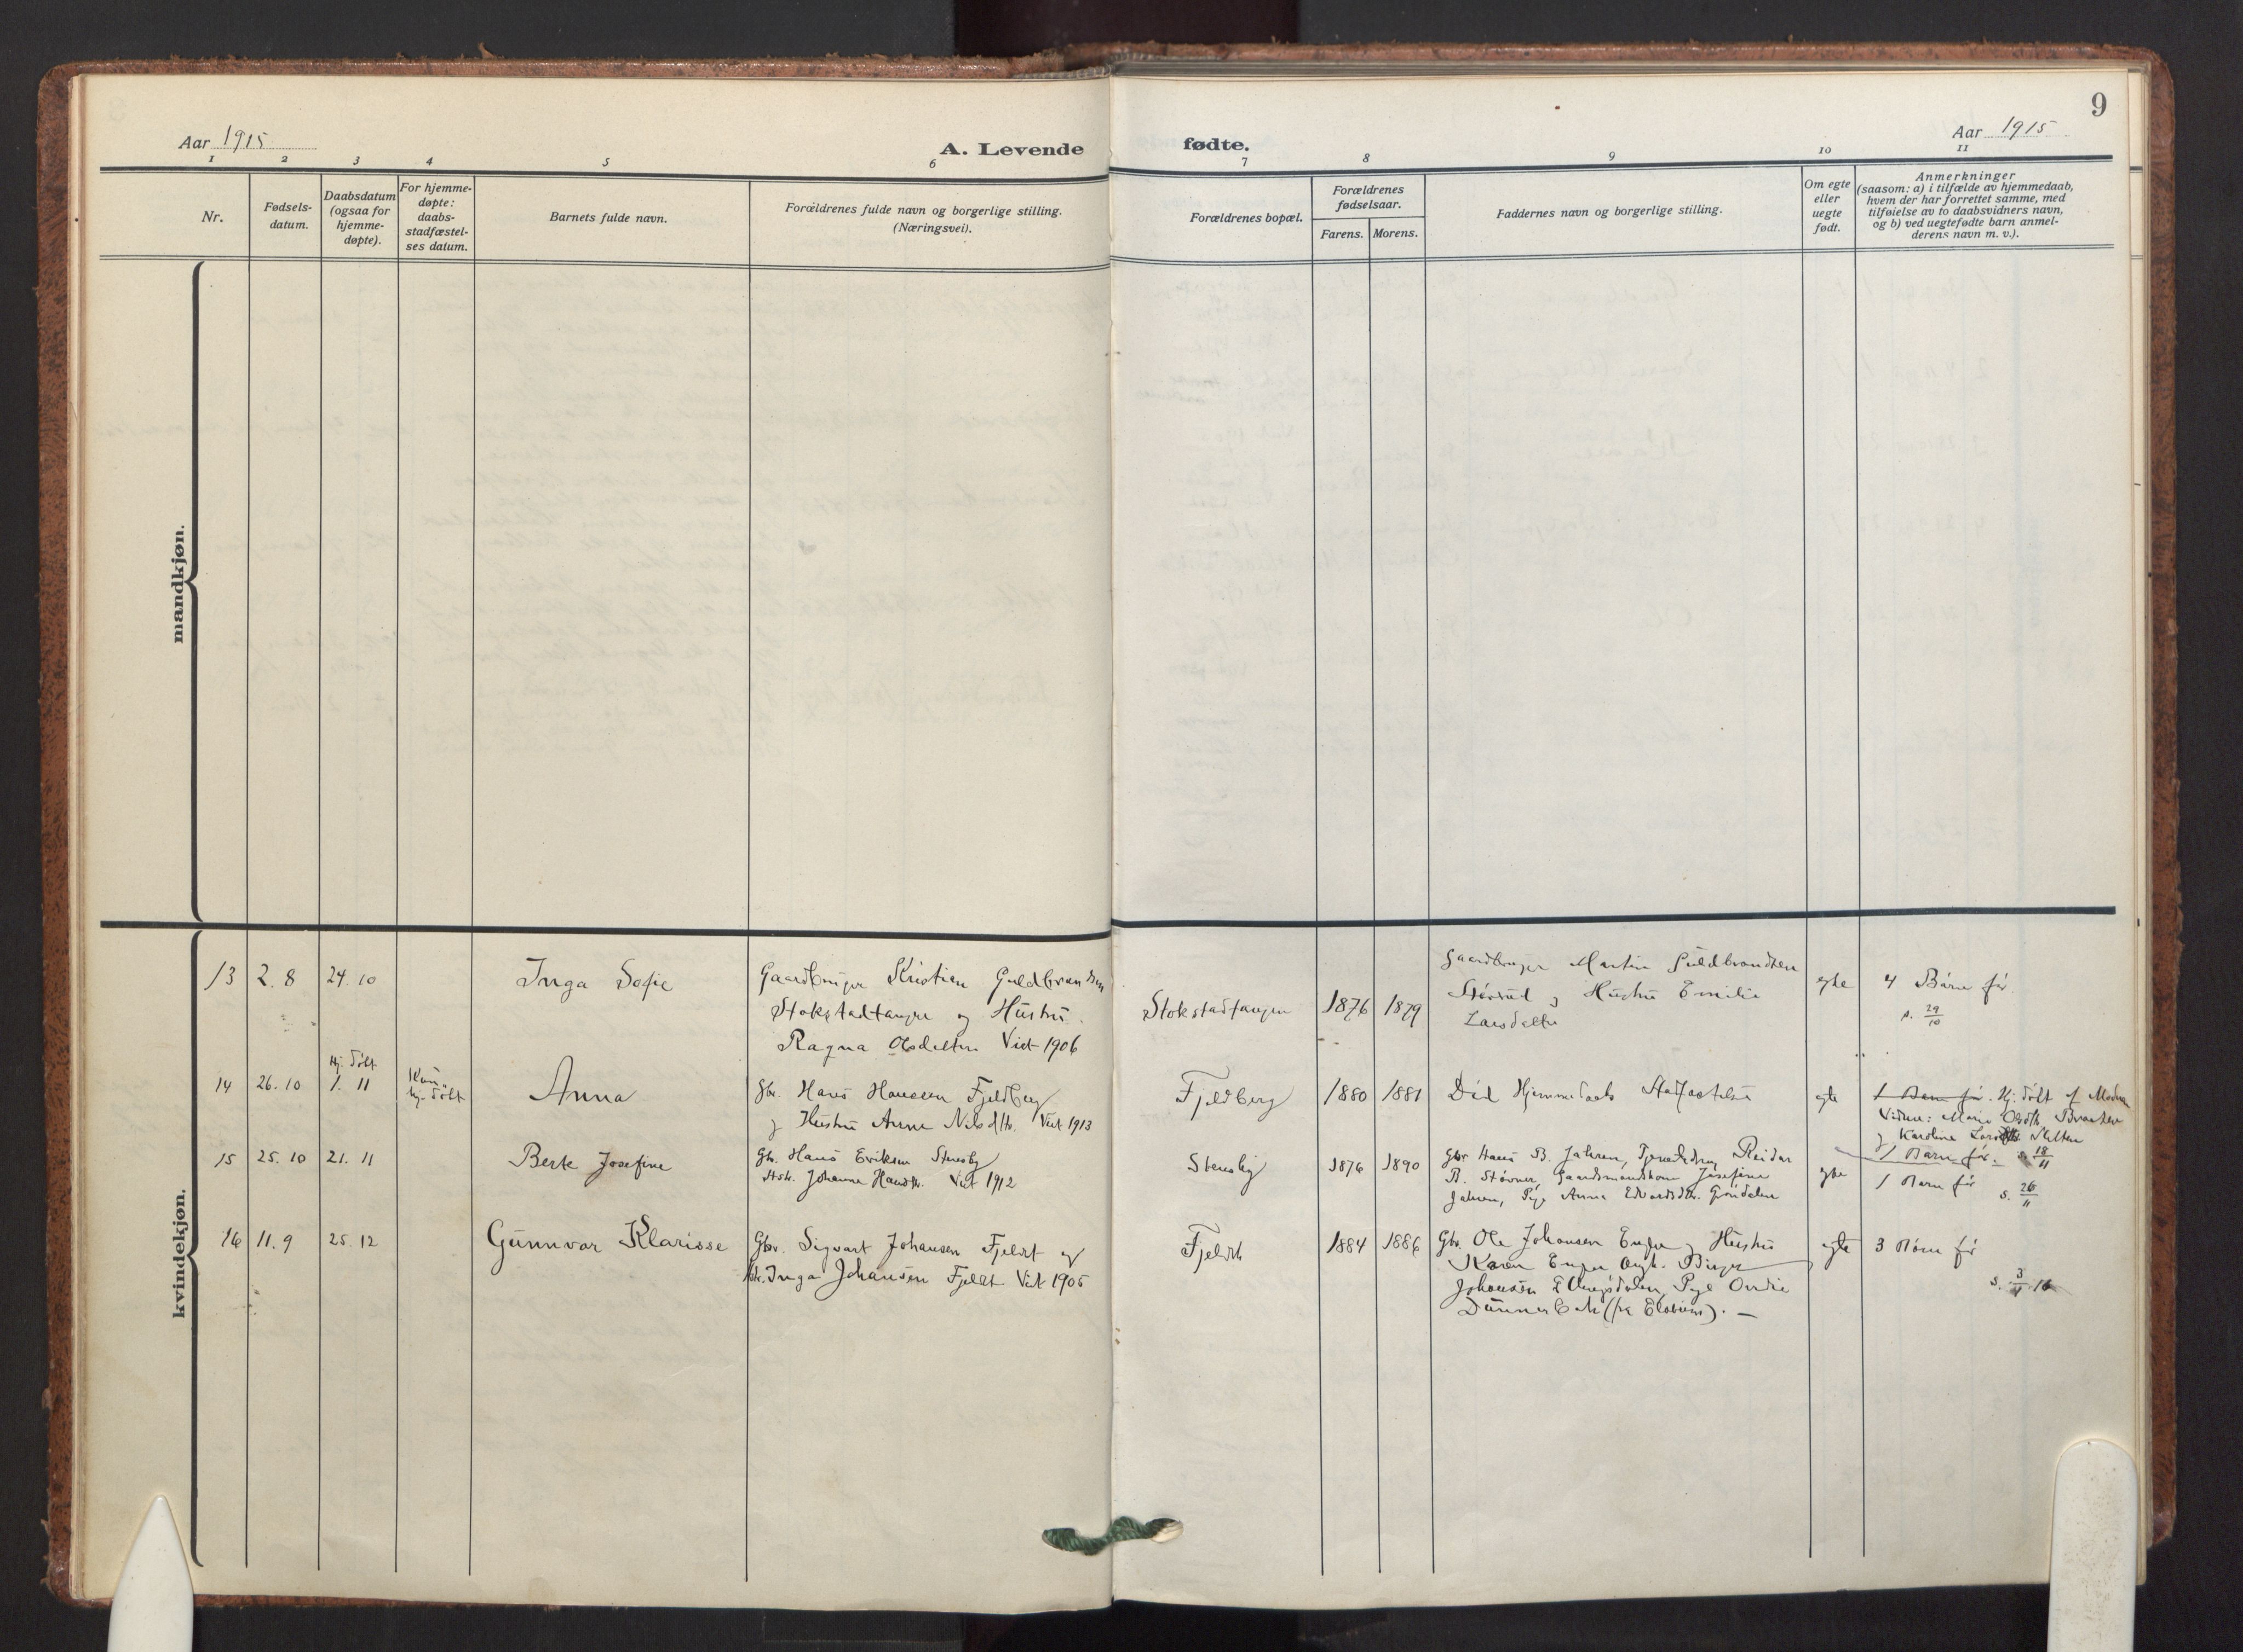 9
Aar 1915
A. Levende
fødte.
Aar 1915
1 2 3 4 5 6 7 8 9 10 11
Nr.
Fødsels-
datum.
Daabsdatum
(ogsaa for
hjemme-
døpte).
For hjemme-
døpte:
daabs-
stadfæstel-
ses datum.
Barnets fulde navn.
Forældrenes fulde navn og borgerlige stilling.
(Næringsvei).
Forældrenes bopæl.
Forældrenes
fødselsaar.
Farens. Morens.
Faddernes navn og borgerlige stilling.
Om egte
eller
uegte
født.
Anmerkninger
(saasom: a) i tilfælde av hjemmedaab,
hvem der har forrettet samme, med
tilføielse av to daabsvidners navn,
og b) ved uegtefødte barn anmel-
derens navn m. v.).
mandkjøn.
kvindekjøn.
13 2.8 24.10
Inga Sofie
Gaardbruger Kristian Guldbrandsen
Stokstadtangen og Hustru
Ragna Olsdatter Viet 1906
Stokstadtangen
1876 1879
Gaardbruger Martin Guldbrandsen
Størrud og Hustru Emilie
Larsdatter
egte
4 Børn før
s. 29/10
14 26.10
Hj. døbt
1. 11
Kun
hj. døbt
Anna
Gbr. Hans Hansen Fjeldberg
og Hustru Anne Nilsdtr. Viet 1913
Fjeldberg
1880 1881
Død Hjemmedaab Stadfæstelse
egte
1 Barn før. Hj. døbt af Moderen
Vidner: Marie Olsdtr. Braaten
og Karoline Larsdtr. Sletten
1 Barn før. s. 18/11
15 25.10 21.11
Berte Josefine
Gbr. Hans Eriksen Stensby
Hstr. Johanne Hansdtr. Viet 1912
Stensby
1876 1890
Gbr. Hans B. Jahren, Reidar
B. Støvner, Gaardmandskone Josefine
Jahren, Pige Anna Edvardsdtr. Grøndalen
egte
1 Barn før
s. 26/11
16 11.9 25.12
Gunnvor Klarisse
Gbr. Sigvart Johansen Fjeldt og
Hstr. Inga Johansen Fjeldt Viet 1905
Fjeldt
1884 1886
Gbr. Ole Johansen Enger og Hustru
Karen Enger Ungk. Birger
Johansen Pige
(fra ).—
egte
3 Børn før
s. 3/1 16